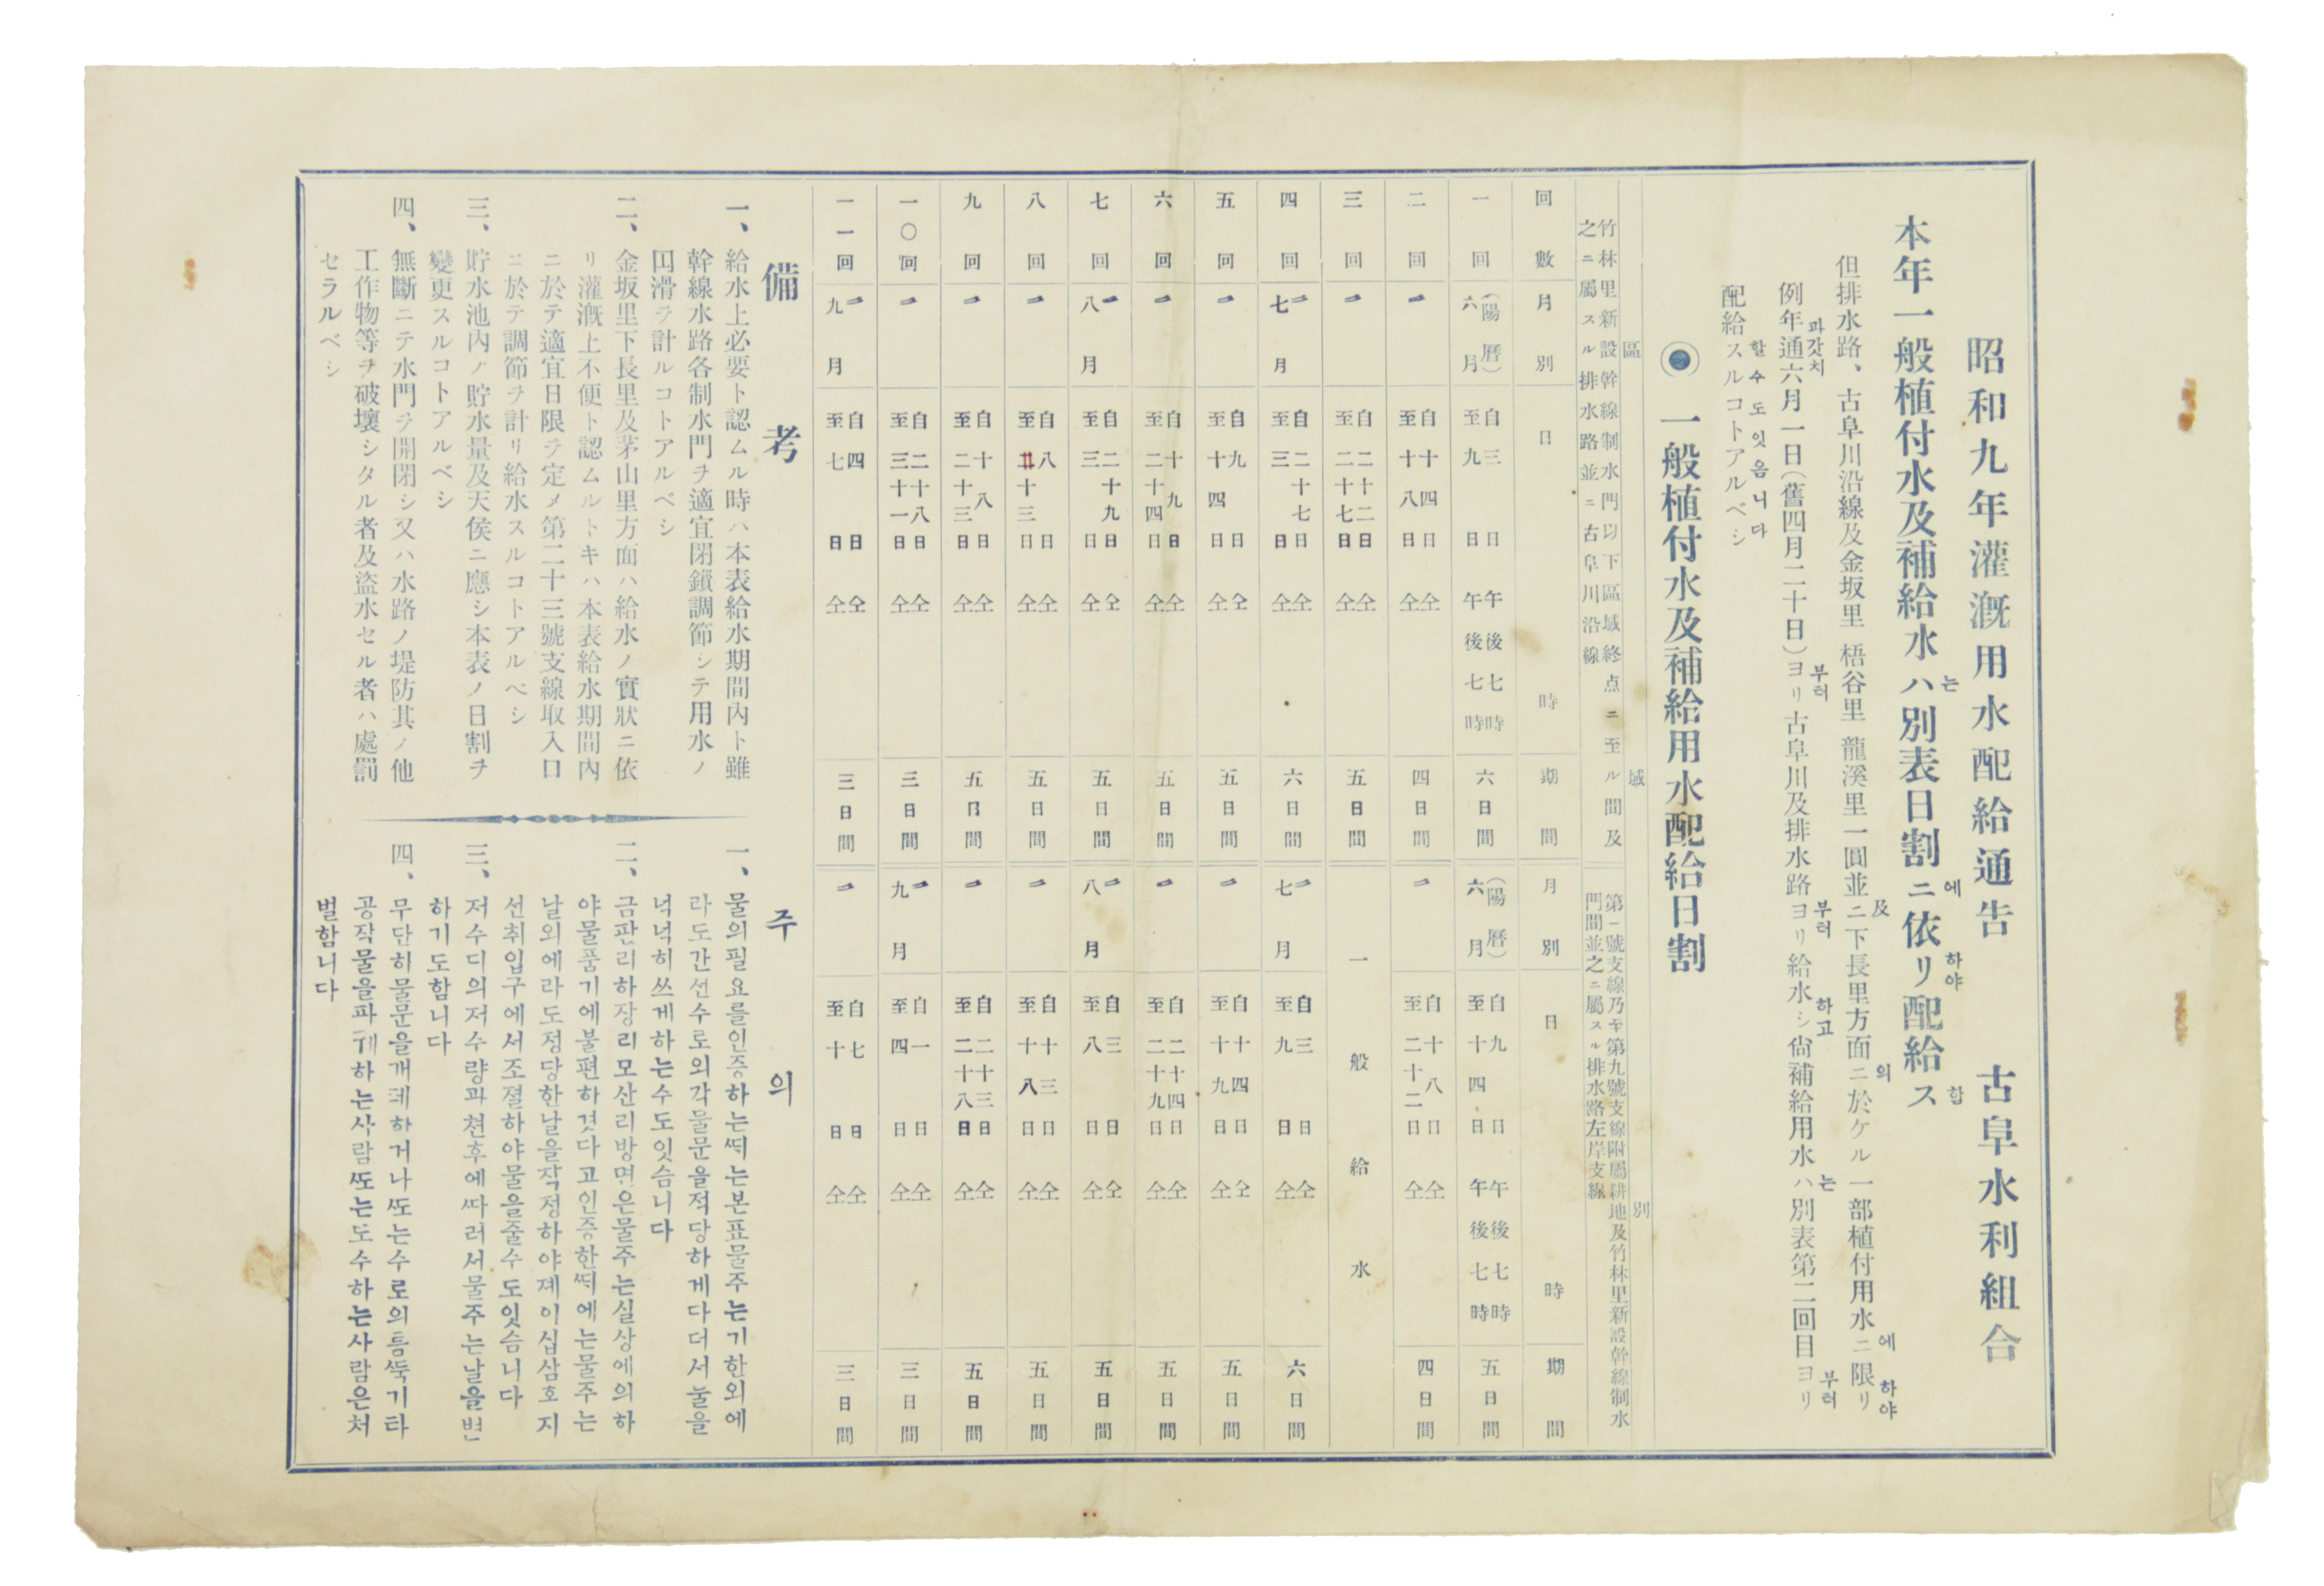 昭和九年灌漑用水配給通告 古阜水利組合
는 에 하야 함
本年一般植付水及補給水ハ別表日割ニ依リ配給ス
及 의 에 하야
但排水路、古阜川沿線及金坂里 梧谷里 龍溪里一圓並ニ下長里方面ニ於ケル一部植付用水ニ限リ
과갓치 부터 부터 하고 는 부터
例年通六月一日(舊四月二十日)ヨリ古阜川及排水路ヨリ給水シ尙補給用水ハ別表第二回目ヨリ
할수도잇음니다
配給スルコトアルベシ
一般植付水及補給用水配給日割
區域別
竹林里新設幹線制水門以下區域終点ニ至ル間及
之ニ屬スル排水路並ニ古阜川沿線
第一號支線乃至第九號支線附屬耕地及竹林里新設幹線制水
門間並之ニ屬スル排水路左岸支線
回數 月別 日時 期間 月別 日時 期間
一回 (陽曆)六月 自三日午後七時 至九日午後七時 六日間 (陽曆)六月 自九日午後七時 至十四日午後七時 五日間
二回 〃 自十四日仝 至十八日仝 四日間 〃 自十八日仝 至二十二日仝 四日間
三回 〃 自二十二日仝 至二十七日仝 五日間 一般給水
四回 〃七月 自二十七日仝 至三日仝 六日間 〃七月 自三日仝 至九日仝 六日間
五回 〃 自九日仝 至十四日仝 五日間 〃 自十四日仝 至十九日仝 五日間
六回 〃 自十九日仝 至二十四日仝 五日間 〃 自二十四日仝 至二十九日仝 五日間
七回 〃八月 自二十九日仝 至三日仝 五日間 〃八月 自三日仝 至八日仝 五日間
八回 〃 自八日仝 至十三日仝 五日間 〃 自十三日仝 至十八日仝 五日間
九回 〃 自十八日仝 至二十三日仝 五日間 〃 自二十三日仝 至二十八日仝 五日間
一〇回 〃 自二十八日仝 至三十一日仝 三日間 〃九月 自一日仝 至四日仝 三日間
一一回 〃九月 自四日仝 至七日仝 三日間 〃 自七日仝 至十日仝 三日間
備考
一、給水上必要ト認ムル時ハ本表給水期間内ト雖
幹線水路各制水門ヲ適宜閉鎖調節シテ用水ノ
円滑ヲ計ルコトアルベシ
二、金坂里下長里及茅山里方面ハ給水ノ實狀ニ依
リ灌漑上不便ト認ムルトキハ本表給水期間内
ニ於テ適宜日限ヲ定メ第二十三號支線取入口
ニ於テ調節ヲ計リ給水スルコトアルベシ
三、貯水池内ノ貯水量及天侯ニ應シ本表ノ日割ヲ
變更スルコトアルベシ
四、無斷ニテ水門ヲ開閉シ又ハ水路ノ堤防其ノ他
工作物等ヲ破壞シタル者及盜水セル者ハ處罰
セラルベシ
주의
一、물의필요를인증하는ᄯᅢ는본표물주는기한외에
라도간선수로의각물문을적당하게다더서눌을
넉넉히쓰게하는수도잇슴니다
二、금판리하장리모산리방면은물주는실상에의하
야물품기에불편하겻다고인증한ᄯᅢ에는물주는
날외에라도정당한날을작정하야제이십삼호지
선취입구에서조절하야물을줄수도잇슴니다
三、저수디의저수량과쳔후에ᄯᅡ러서물주는날을변
하기도함니다
四、무단히물문을개페하거나ᄯᅩ는수로의틈ᄯᅮᆨ기타
공작물을파훼하는사람ᄯᅩ는도수하는사람은처
벌함니다